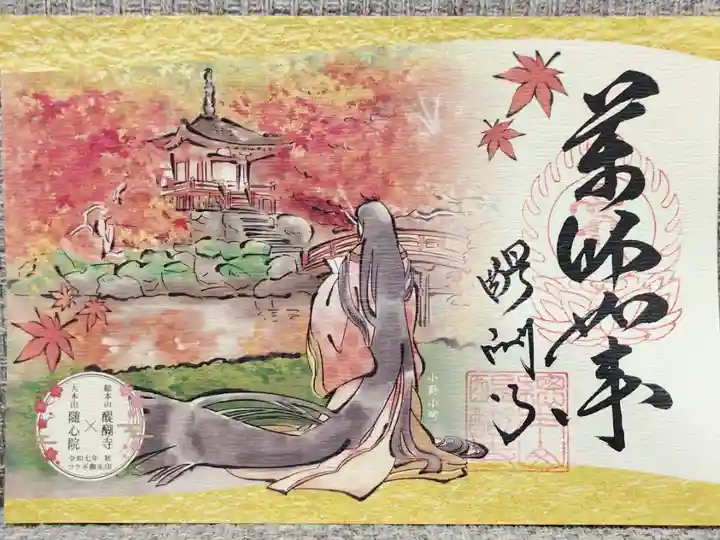 薬師如来
醍醐寺
小野小町
総本山 醍醐寺
×
大本山 随心院
令和七年 秋
コラボ御朱印